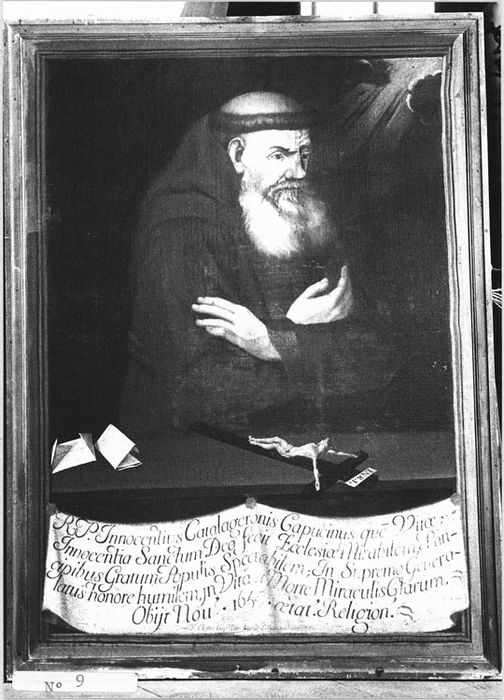 INRI
R. P. Innocentius Catalageronis Capucinus quē Vitæ:
Innocentia Sanctum Deo fecit Ecclesiæ Mirabilem, Prin-
cipibus Gratum, Populis Spectabilem; In Supremo Genera-
latus honore humilem, in Vita et Morte Miraculis Clarum.
Obijt Nou. 165 ætat. Religion.
No 9